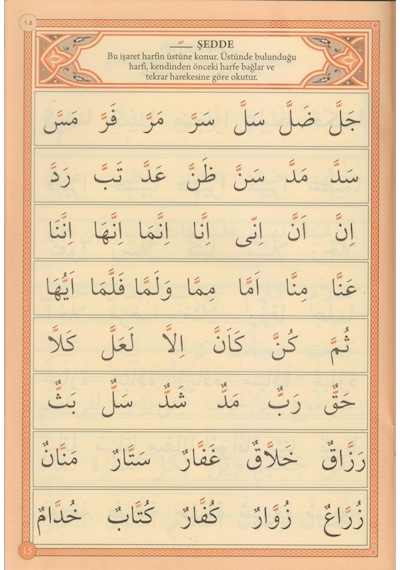 ١٥
ـــّـــ ŞEDDE
Bu işaret harfin üstüne konur. Üstünde bulunduğu
harfi, kendinden önceki harfe bağlar ve
tekrar harekesine göre okutur.
جَلَّ ضَلَّ سَلَّ سَرَّ مَرَّ فَرَّ مَسَّ
سَدَّ مَدَّ سَنَّ ظَنَّ عَدَّ تَبَّ رَدَّ
اِنَّ اَنَّ اِنّٖى اِنَّا اِنَّمَا اِنَّهَا اِنَّنَا
عَنَّا مِنَّا اَمَّا مِمَّا وَلَمَّا فَلَمَّا اَيُّهَا
ثُمَّ كُنَّ كَاَنَّ اِلَّا لَعَلَّ كَلَّا
حَقٌّ رَبٌّ مَدٌّ شَدٌّ سَلٌّ بَثٌّ
رَزَّاقٌ خَلَّاقٌ غَفَّارٌ سَتَّارٌ مَنَّانٌ
زُرَّاعٌ زُوَّارٌ كُفَّارٌ كُتَّابٌ خُدَّامٌ
15